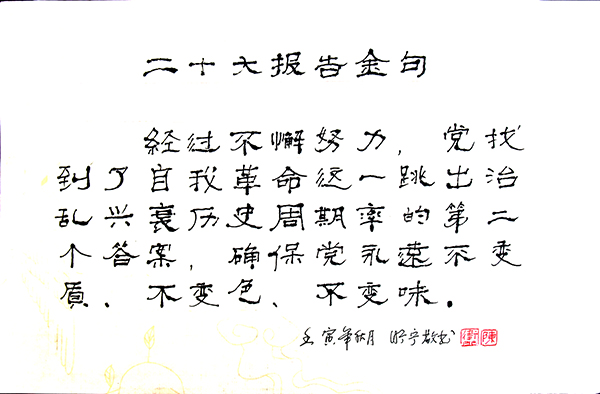 二十大报告金句
经过不懈努力，党找
到了自我革命这一跳出治
乱兴衰历史周期率的第二
个答案，确保党永遠不变
质、不变色、不变味。
壬寅年秋月 敬书